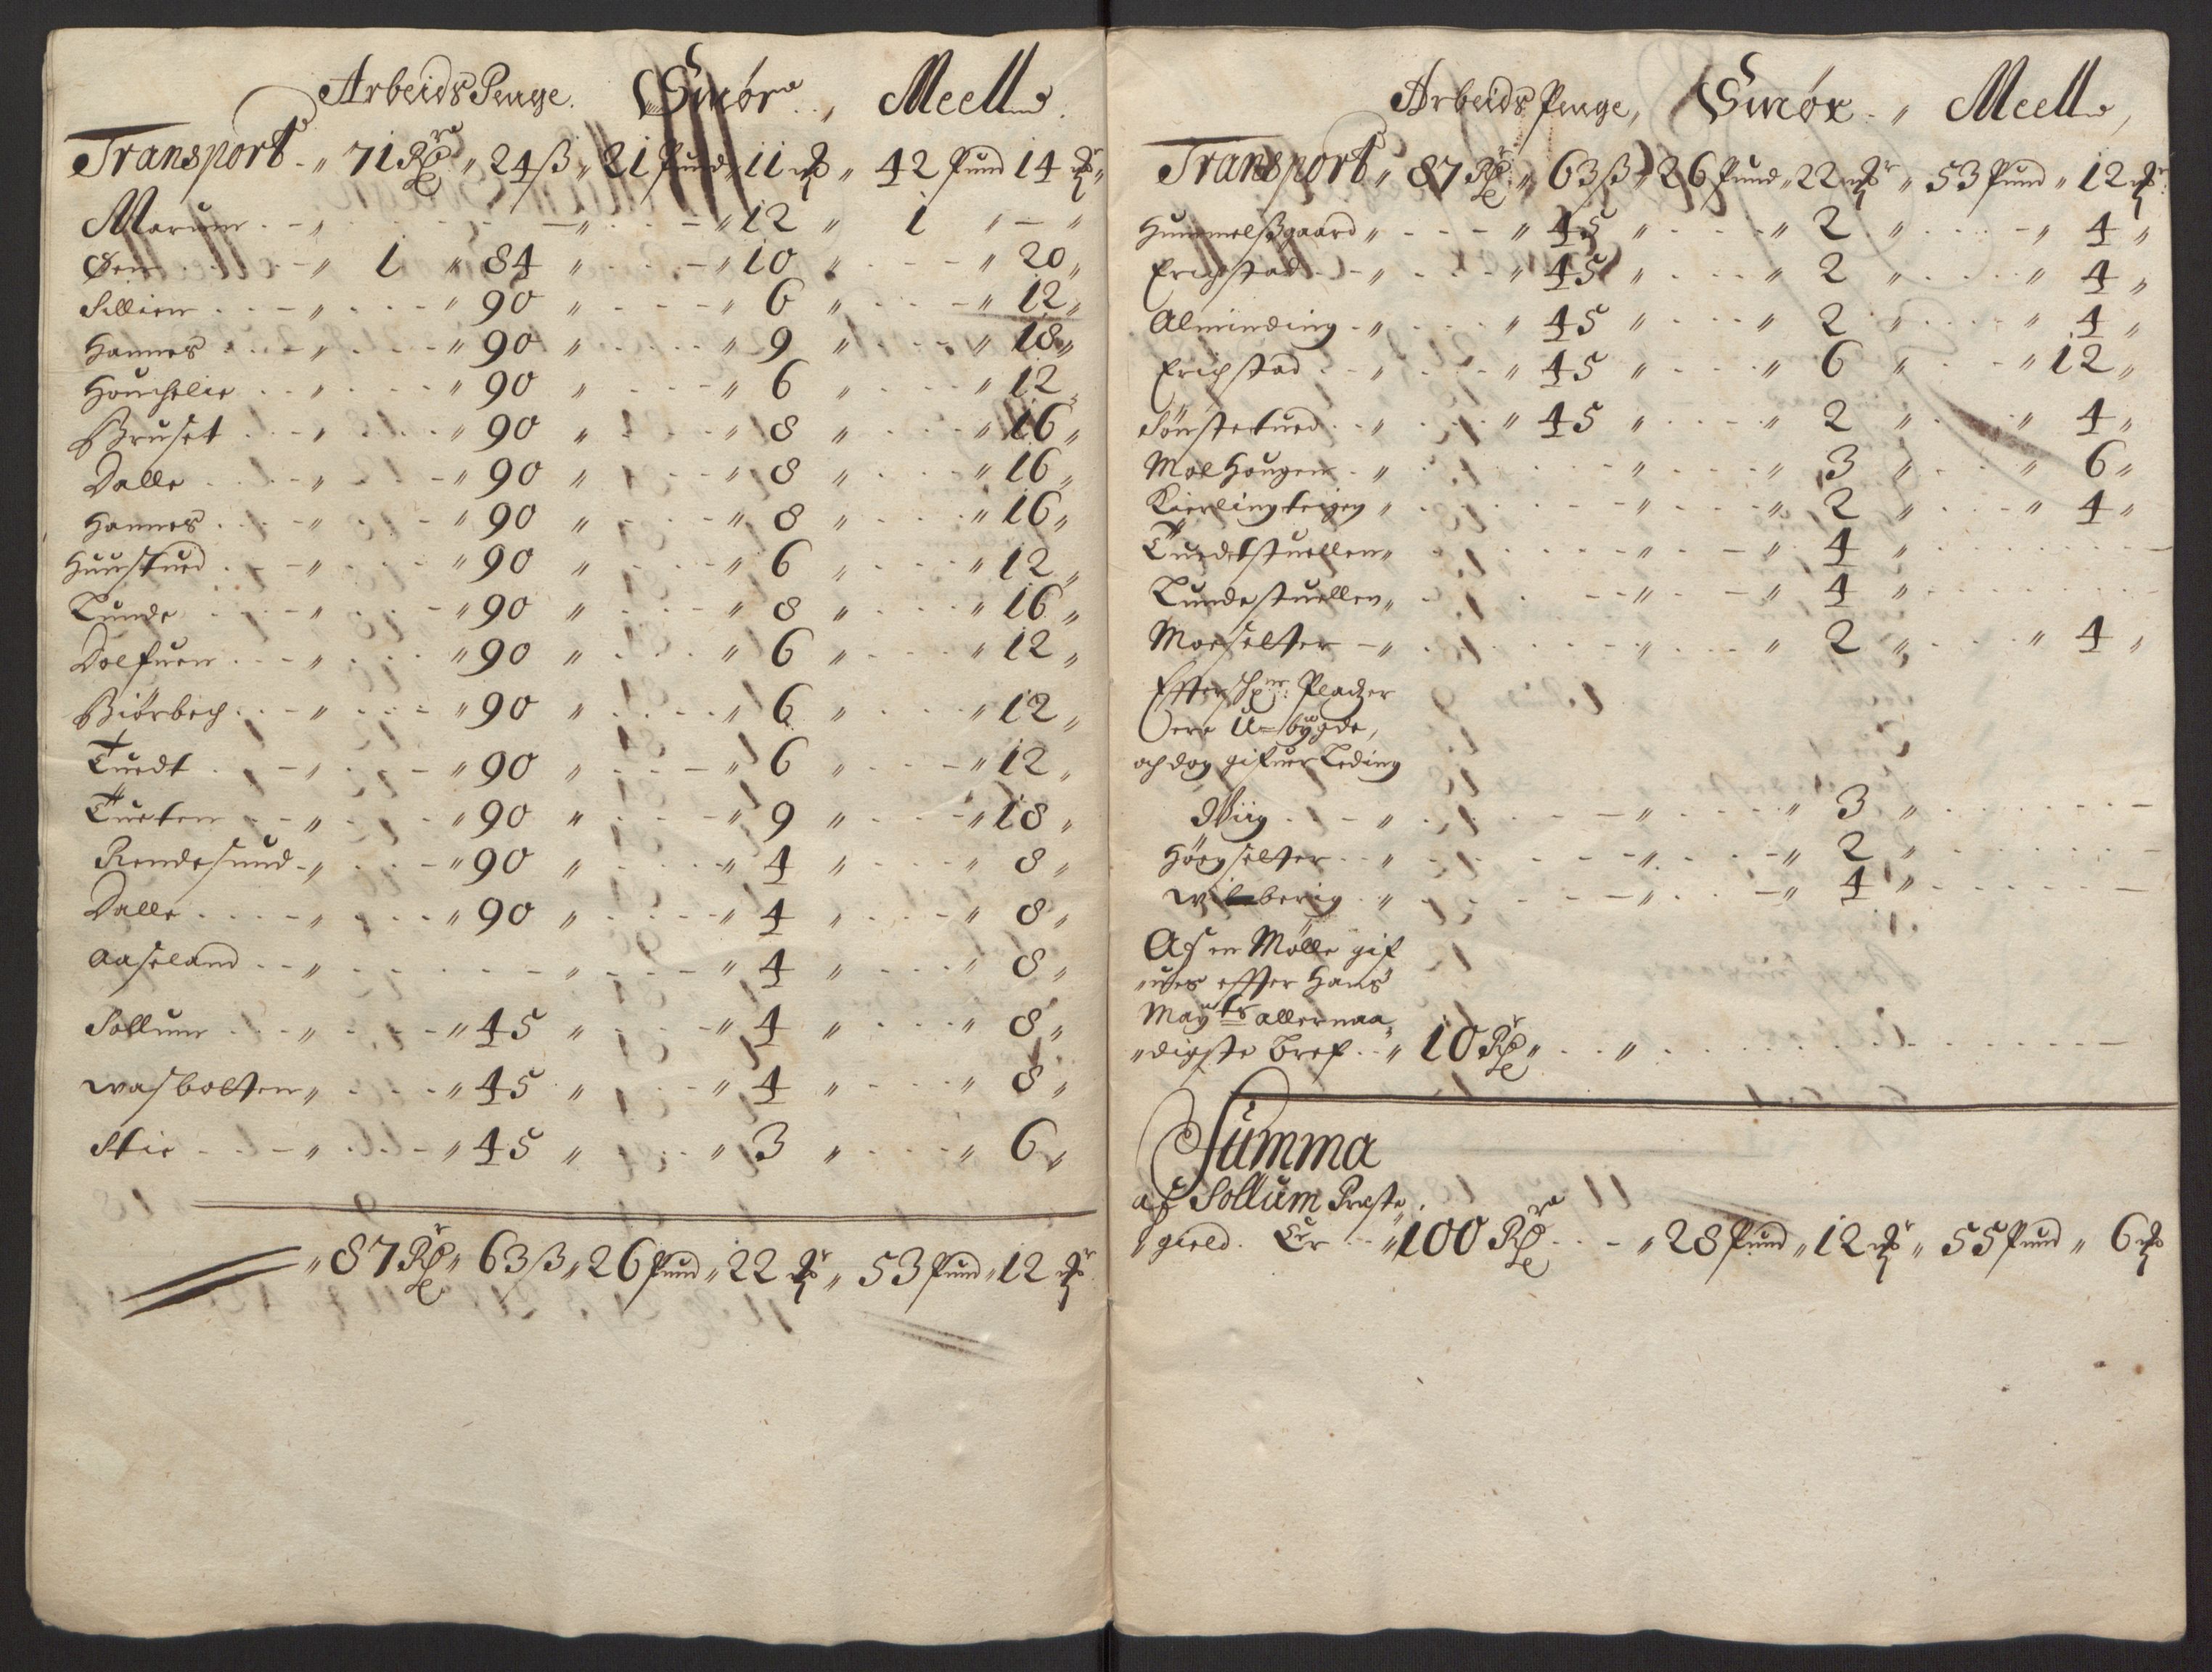 Arbeids Penge. Smör, Meell.
Transport „ 71 Rdr „ 24 ß „ 21 Pund „ 11 ℔ „ 42 Pund 14 ℔r „
Marum . - „ . . . - „ . . - „ 12 „ 1 „ - „
Øen . . . - „ 1 „ 84 „ . . - „ 10 „ . . - „ 20 „
Sillien . . - „ . . - „ 90 „ . . - „ 6 „ . . - „ 12 „
Hannes . . - „ . . - „ 90 „ . . . „ 9 „ . . - „ 18 „
Houchelie . . „ . . . „ 90 „ . . - „ 6 „ . . . „ 12 „
Bruset . . - „ . . . „ 90 „ . . - „ 8 „ . . . „ 16 „
Dalle . . - „ . . - „ 90 „ . . - „ 8 „ . . . „ 16 „
Hannes . . . „ . . - „ 90 „ . . . „ 8 „ . . . „ 16 „
Huustued . . - „ . . . „ 90 „ . . . „ 6 „ . . . „ 12 „
Lunde . . - „ . . - „ 90 „ . . - „ 8 „ . . . „ 16 „
Dolfuen . . - „ . . . „ 90 „ . . . „ 6 „ . . . „ 12 „
Biörbech . . - „ . . - „ 90 „ . . . „ 6 „ . . . „ 12 „
Tuedt . . - „ . . - „ 90 „ . . - „ 6 „ . . - „ 12 „
Tueten . - - „ . . . „ 90 „ . . - „ 9 „ . . - „ 18 „
Rendesund - „ . . - „ 90 „ . . . „ 4 „ . . . „ 8 „
Dalle . . . - „ . . . „ 90 „ . . - „ 4 „ . . - „ 8 „
Aaseland . - „ . . . - „ . . - „ 4 „ . . . „ 8 „
Sollum . . - „ . . - „ 45 „ . . - „ 4 „ . . . „ 8 „
Wasbotten „ . . - „ 45 „ . . - „ 4 „ . . . „ 8 „
Stie . . - „ . . - „ 45 „ . . . „ 3 „ . . . „ 6 „
„ 87 Rdr „ 63 ß „ 26 Pund „ 22 ℔r „ 53 Pund „ 12 ℔r
Arbeids Penge, Smör . „ Meell,
Transport „ 87 Rdr „ 63 ß „ 26 Pund „ 22 ℔r „ 53 Pund „ 12 ℔r.
Hummelßgaard „ . . - „ 45 „ . . . „ 2 „ . . - „ 4 „
Erichstad . - „ . . - „ 45 „ . . . „ 2 „ . . . „ 4 „
Alminding . „ . . . „ 45 „ . . . „ 2 „ . . . „ 4 „
Erichstad . - „ . . - „ 45 „ . . . „ 6 „ . . - „ 12 „
Sönstetued . - „ . . . „ 45 „ . . - „ 2 „ . . . „ 4 „
Molhougen . „ . . . - „ . . . „ 3 „ . . . „ 6 „
Kierlingteigen „ . . . - „ . . . „ 2 „ . . - „ 4 „
Tuedtstuellen „ . . . . „ . - „ 4 „ . . . . -
Lundestuellen „ . . - - „ . - „ 4 „ . . . .
Moeselter - „ . . . . „ . . . „ 2 „ . . . „ 4 „
Pladzer
ere U-bygde,
och dog gifuer Leding
Wiig . . - „ . . . - „ . . . „ 3 „ . . . . -
Högselter . . „ . . . - „ . . - „ 2 „ . . . . -
berig . „ . . . - „ . . - „ 4 „ . . . . -
Af en Mölle gif
„ues effter Hans
Mayts allernaa„
„digste Bref . . „ 10 Rdr „ . . „ . . . . . . . -
Summa
af Sollum Præste„
„gield. Er . . „ 100 Rdr . . - „ 28 Pund „ 12 ℔r „ 55 Pund „ 6 ℔